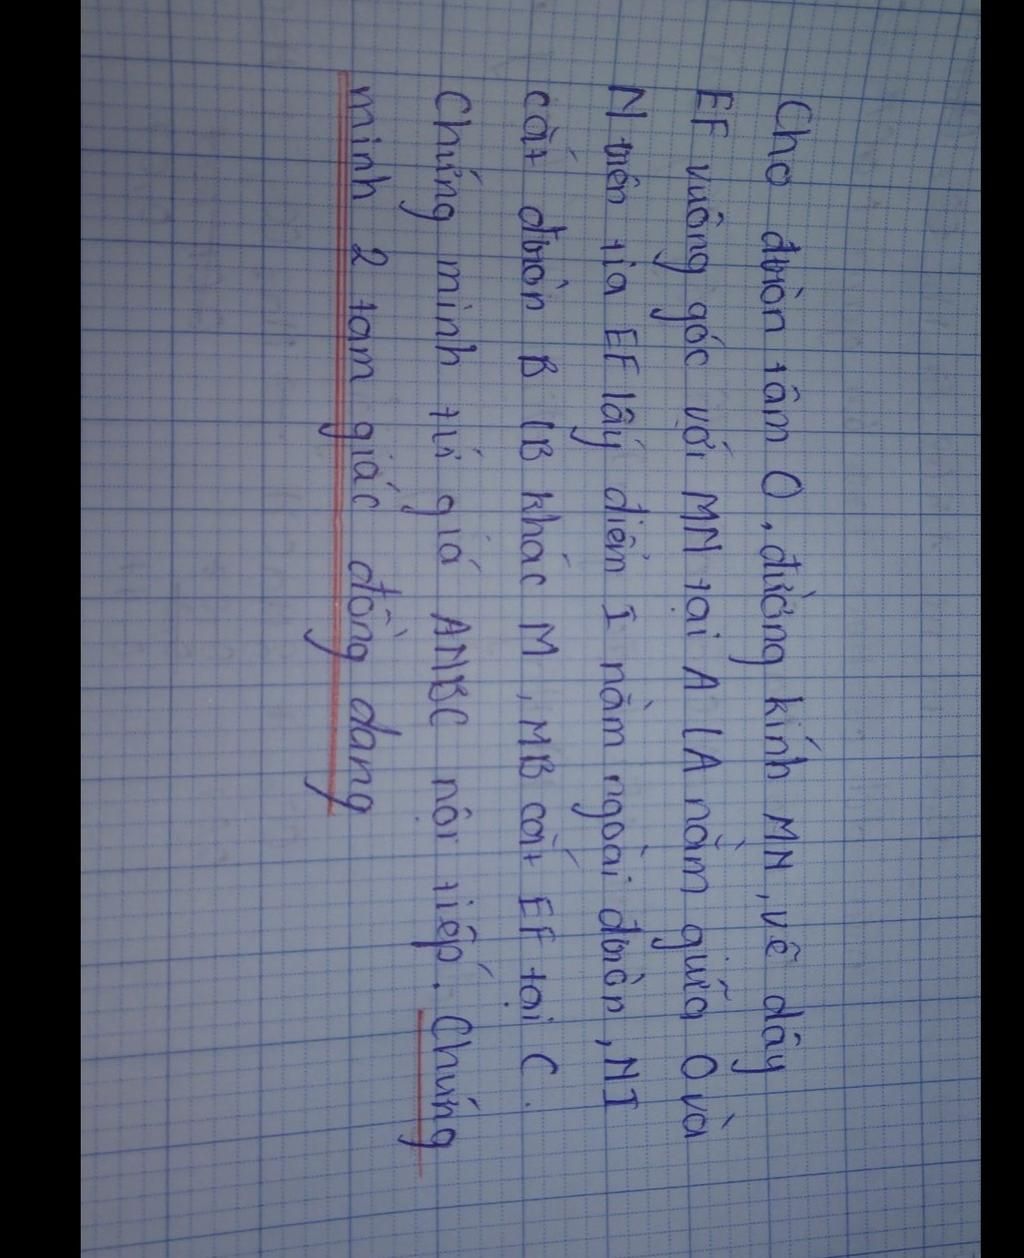 Cho đườn tâm O, đường kính MN, vẽ dây
EF vuông góc với MN tại A (A nằm giữa O và
N trên tia EF lấy điểm I nằm ngoài đườn, NI
cắt đườn B (B khác M, MB cắt EF tại C.
Chứng minh tứ giá ANBC nội tiếp. Chứng
minh 2 tam giác đồng dang